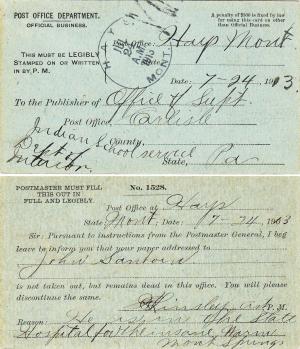 POST OFFICE DEPARTMENT.
OFFICIAL BUSINESS.
A penalty of $300 is fixed by law
for using this card on other
than Official Business.
THIS MUST BE LEGIBLY
STAMPED ON OR WRITTEN
IN BY P. M.
HAYS
MONT.
Post Office: Hays Mont
Date: 7-24 1913
To the Publisher of Office of Supt.
Post Office Carlisle
Indian School service
County,
Dept of
Interior
State, Pa
POSTMASTER MUST FILL
THIS OUT IN
FULL AND LEGIBLY.
No. 1528.
Post Office at Hays
State Mont, Date: 7-24 1913
Sir: Pursuant to instructions from the Postmaster General, I beg
leave to inform you that your paper addressed to
John
is not taken out, but remains dead in this office. You will please
discontinue the same.
P. M.
Reason He is in the State
Hospital for the insane Warm
Mont Springs